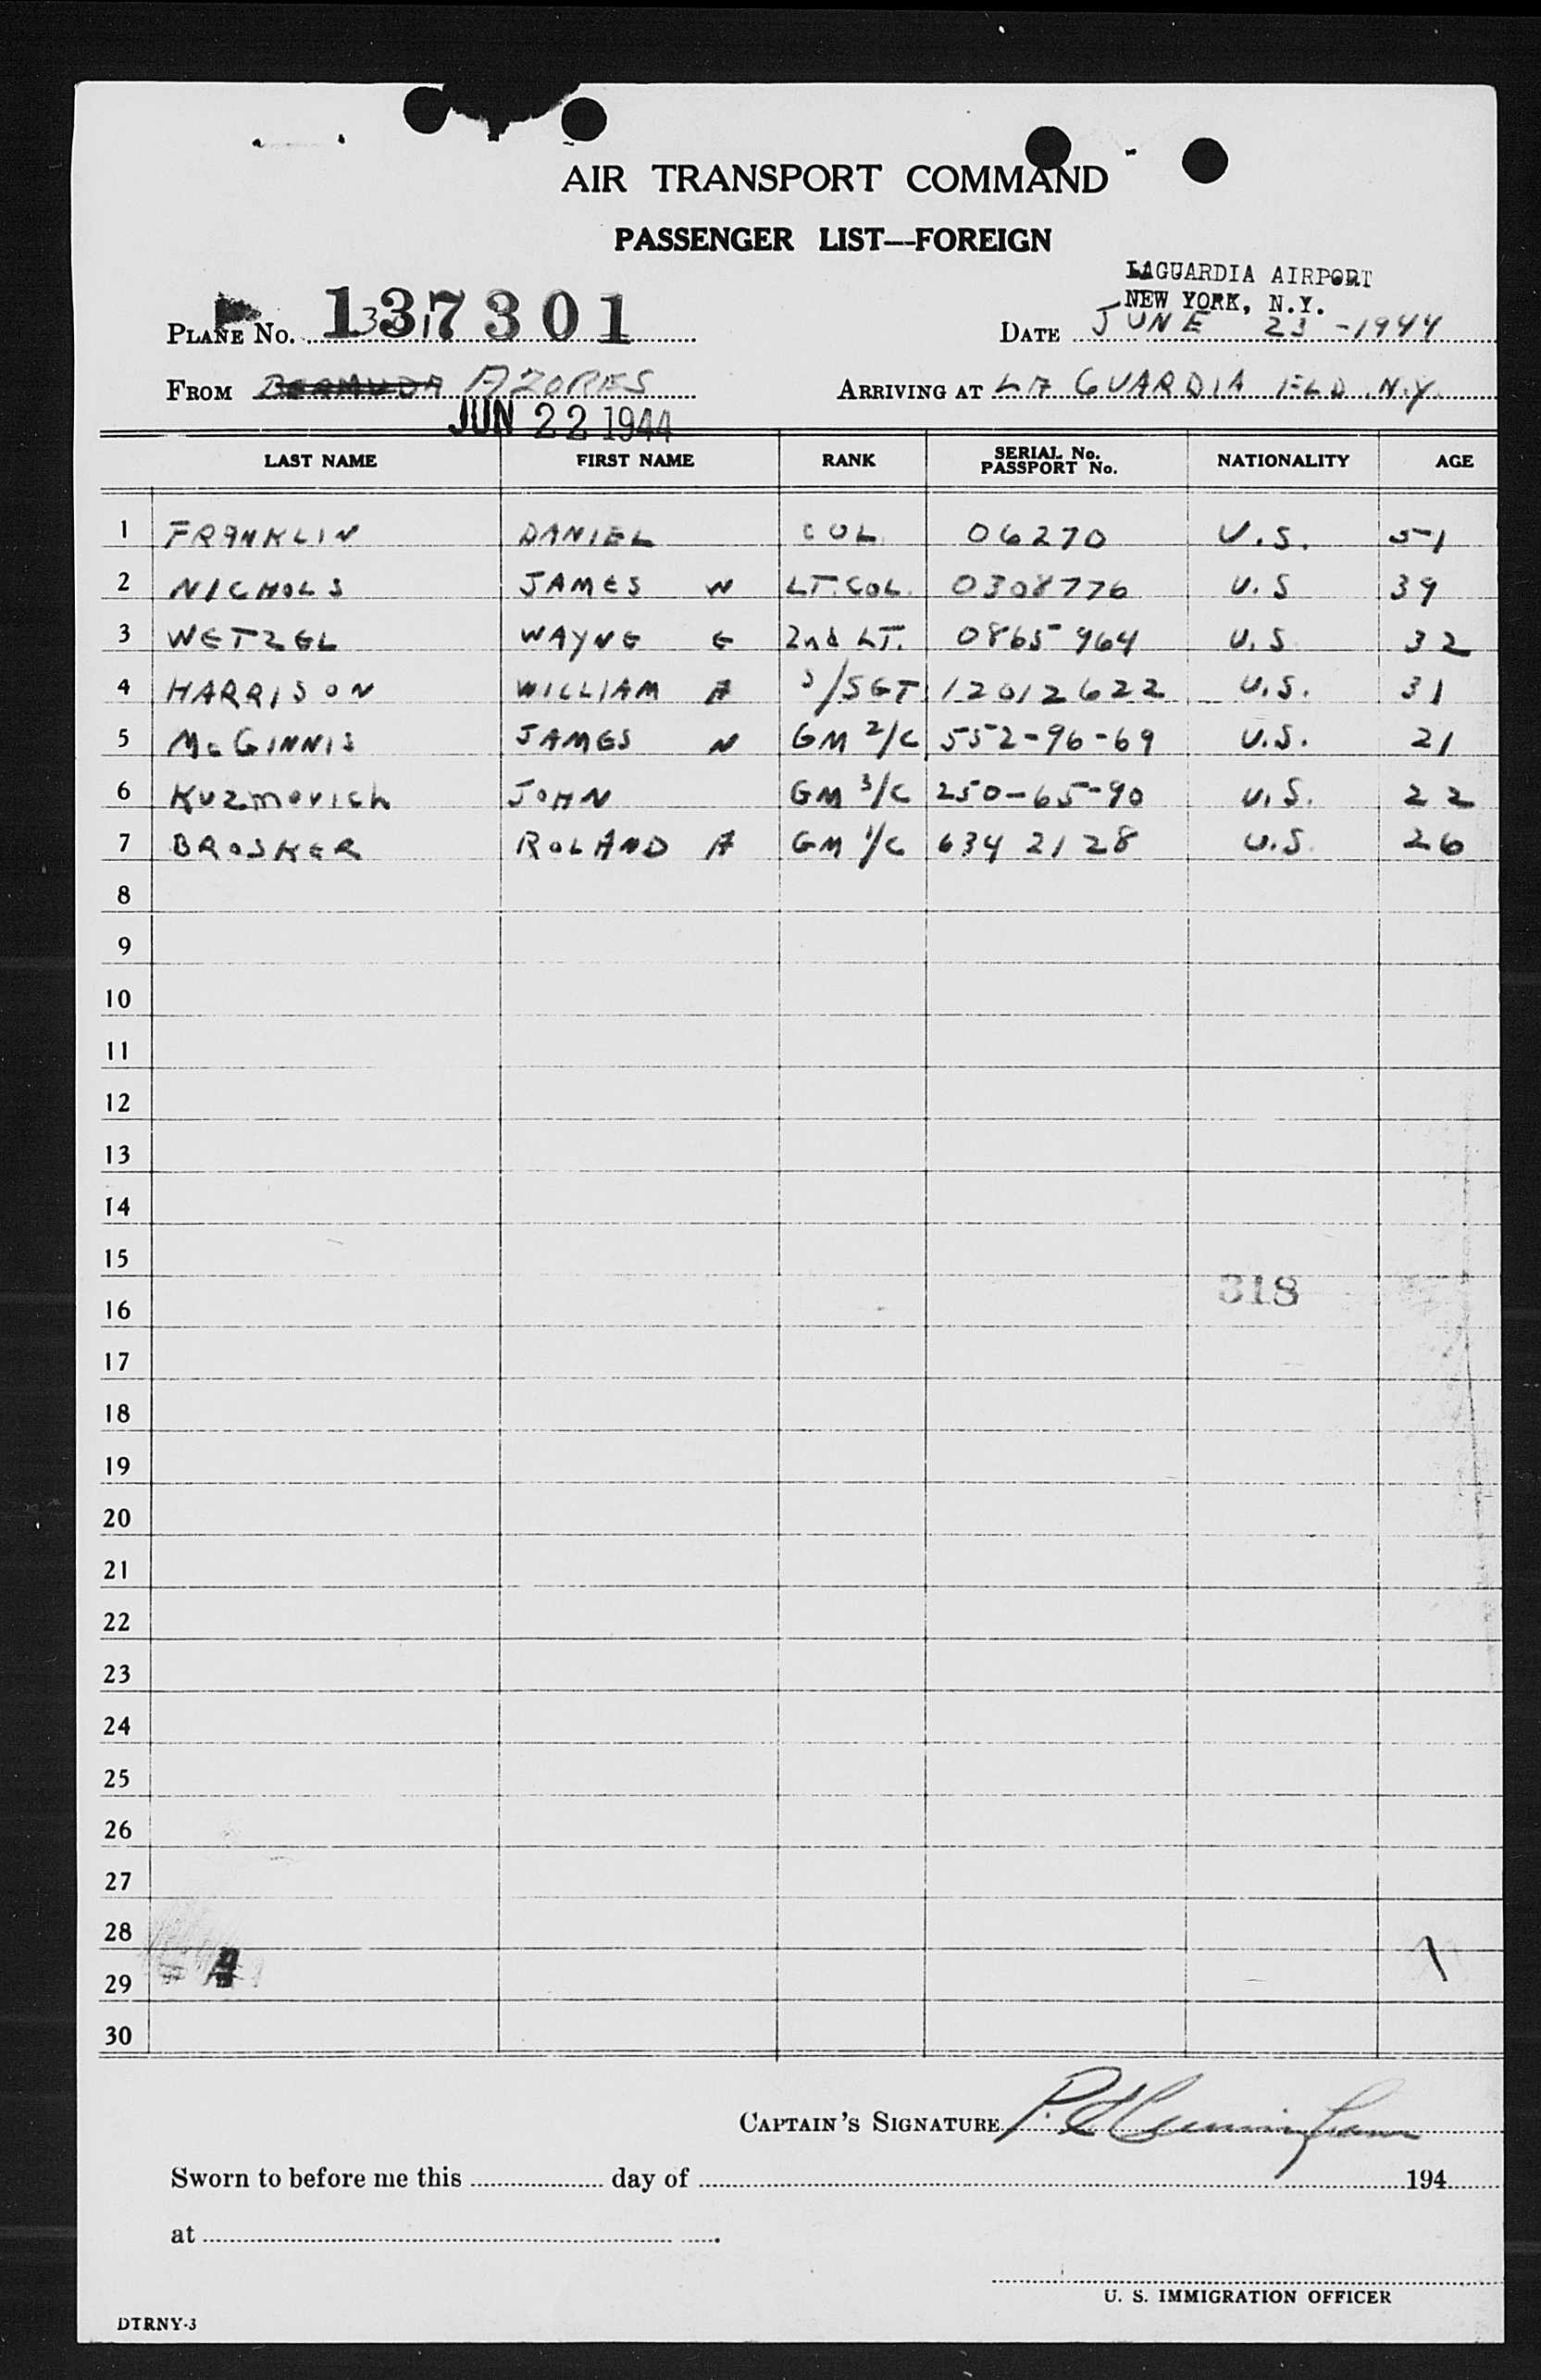 AIR TRANSPORT COMMAND
PASSENGER LIST—FOREIGN
LAGUARDIA AIRPORT
NEW YORK, N.Y.
PLANE No. 137301
DATE JUNE 23 -1944
FROM BERMUDA AZORES
ARRIVING AT LA GUARDIA FLD. N.Y.
JUN 22 1944
LAST NAME FIRST NAME RANK SERIAL No. PASSPORT No. NATIONALITY AGE
1 FRANKLIN DANIEL COL 06270 U.S. 51
2 NICHOLS JAMES W LT. COL. 0308776 U.S 39
3 WETZEL WAYNE E 2nd LT. 0865964 U.S 32
4 HARRISON WILLIAM A S/SGT 12012622 U.S. 31
5 McGINNIS JAMES N GM 2/C 552-96-69 U.S. 21
6 Kuzmovich JOHN GM 3/C 250-65-90 U.S. 22
7 BROSKER ROLAND A GM 1/C 634 21 28 U.S. 26
8
9
10
11
12
13
14
15
318
16
17
18
19
20
21
22
23
24
25
26
27
28
29
30
CAPTAIN'S SIGNATURE
Sworn to before me this day of 194
at
U. S. IMMIGRATION OFFICER
DTRNY-3